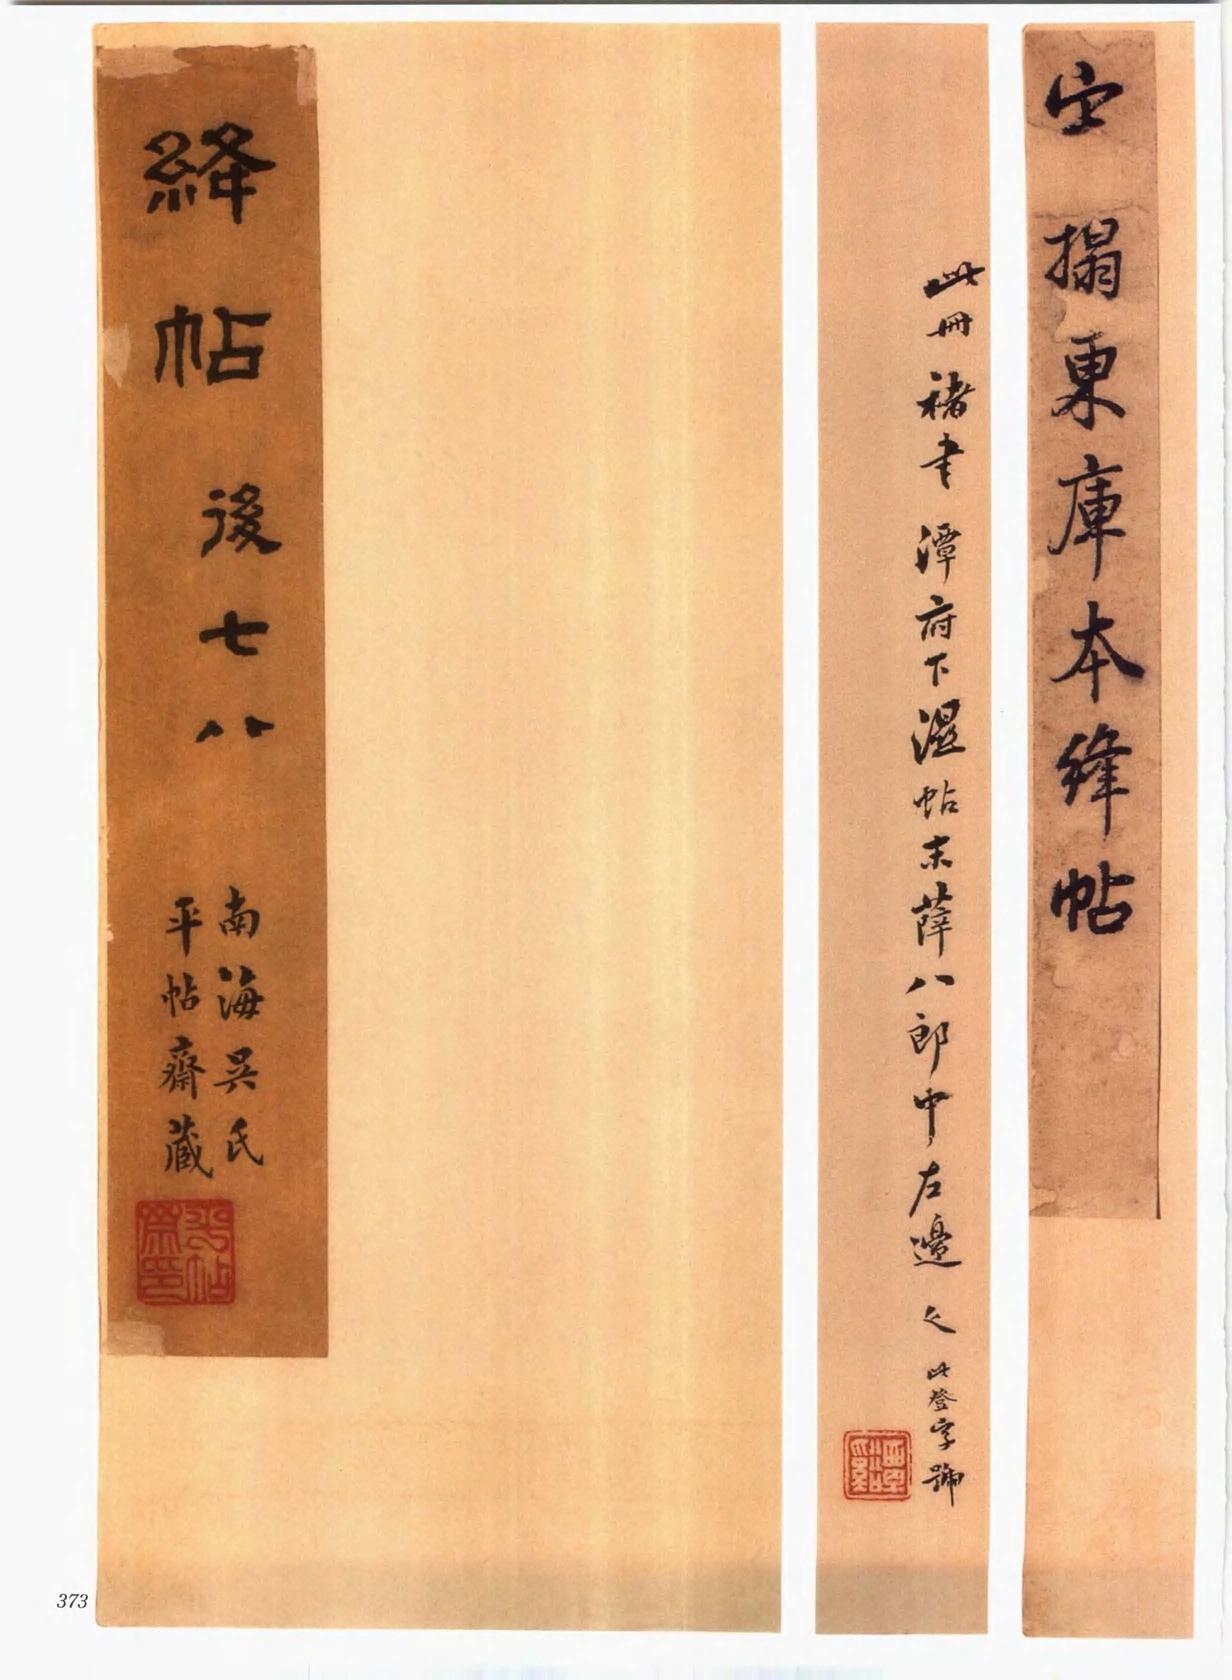 宋搨東庫本絳帖
此冊褚書潭府下濕帖末薛八郎中左邊
此登字號
絳帖後七八
南海吳氏
平帖齋藏
平帖齋印
373